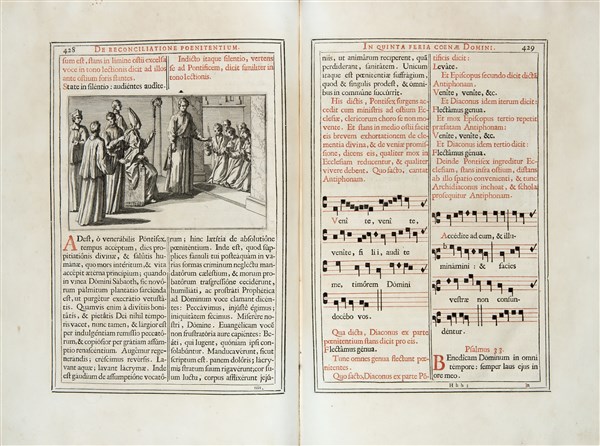 428
DE RECONCILIATIONE POENITENTIUM.
sum est, stans in limine ostii excelsa
voce in tono lectionis dicit ad illos
ante ostium foris stantes.
State in silentio: audientes audite.
Indicto itaque silentio, vertens
se ad Pontificem, dicit similiter in
tono lectionis.
ADest, ô venerabilis Pontifex,
tempus acceptum, dies pro-
pitiationis divinæ, & salutis hu-
manæ, quo mors interitum, & vita
accepit æterna principium; quando
in vinea Domini Sabaoth, sic novo-
rum palmitum plantatio facienda
est, ut purgetur execratio vetustà-
tis. Quamvis enim à divitiis boni-
tatis, & pietatis Dei nihil tempo-
ris vacet, nunc tamen, & largior est
per indulgentiam remissio peccató-
rum, & copiósior per gratiam assum-
ptio renascentium. Augémur rege-
nerandis; crescimus reversis. La-
vant aquæ; lavant lacrymæ. Inde
est gaudium de assumptióne vocató-
rum; hinc lætitia de absolutióne
pœnitentium. Inde est, quod sup-
plices famuli tui posteaquam in va-
rias formas criminum neglectu man-
datórum cælestium, & morum pro-
batórum transgressióne cecidérunt,
humiliati, ac prostrati Prophética
ad Dóminum voce clamant dicen-
tes: Peccávimus, injústè égimus;
iniquitátem fécimus. Miserére no-
stri, Dómine. Evangélicam vocem
non frustratória aure capientes: Be-
áti, qui lugent, quóniam ipsi con-
solabúntur. Manducavérunt, sicut
scriptum est, panem dolóris; lacry-
mis stratum suum rigavérunt; cor su-
um luctu, corpus afflixérunt jejú-
IN QUINTA FERIA COENÆ DOMINI.
429
niis, ut animárum reciperent, quam
perdíderant, sanitátem. Unicum
itaque est pœniténtiæ suffrágium,
quod & singulis prodest, & omni-
bus in commúne succúrrit.
His dictis, Pontifex surgens ac-
cedit cum ministris ad ostium Ec-
clesiæ, clericorum choro se non mo-
vente. Et stans in medio ostii facit
eis brevem exhortationem de cle-
mentia divina, & de venie promis-
sione, dicens eis, qualiter mox in
Ecclesiam reducentur, & qualiter
vivere debent. Quo facto, cantat
Antiphonam.
Vení te, veni te,
venite, fi li i, audi te
me, timórem Dómini
docébo vos.
Qua dicta, Diaconus ex parte
pœnitentium stans dicit pro eis.
Flectámus génua.
Tunc omnes genua flectunt pœ-
nitentes.
Quo facto, Diaconus ex parte Pó-
tificis dicit:
Leváte.
Et Episcopus secundo dicit dictā
Antiphonam.
Venite, venite, &c.
Et Diaconus idem iterum dicit:
Flectámus génua.
Et mox Episcopus tertio repetit
præfatam Antiphonam:
Venite, venite, &c.
Et Diaconus idem tertio dicit:
Flectámus génua.
Deinde Pontifex ingreditur Ec-
clesiam, stans infra ostium, distans
ab illo spatio convenienti, & tunc
Archidiaconus inchoat, & schola
prosequitur Antiphonam.
Accédite ad eum, & illu-
minámini: & facies
vestræ non confun-
déntur.
Psalmus 33.
BEnedicam Dominum in omni
témpore: semper laus ejus in
ore meo.
Hhh3